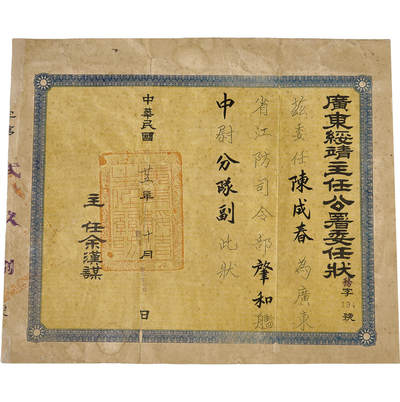 廣東綏靖主任公署委任狀
字194號
茲委任陳成春為廣東
省江防司令部肇和艦
中尉分隊副此狀
中華民國廿年十月日
主任余漢謀